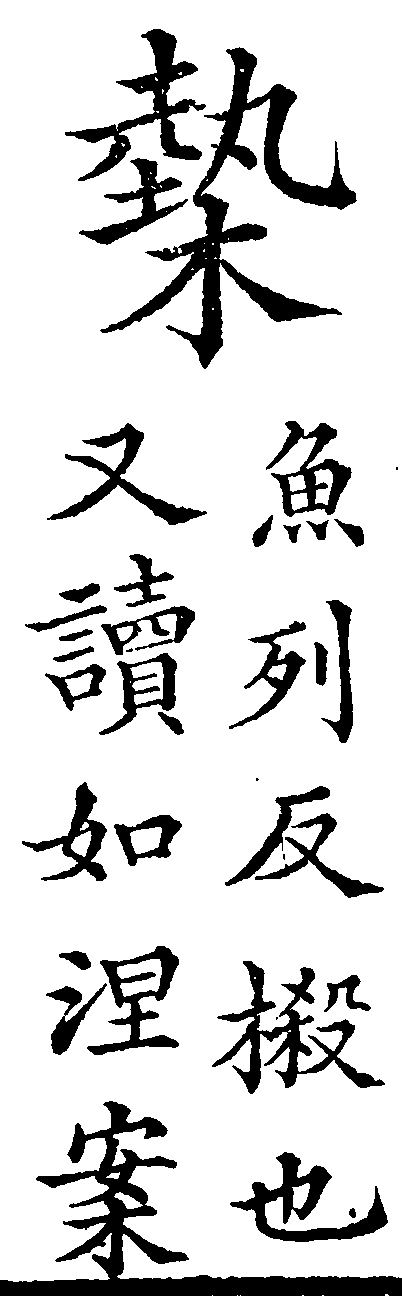 槷
魚列反樧也
又讀如涅案